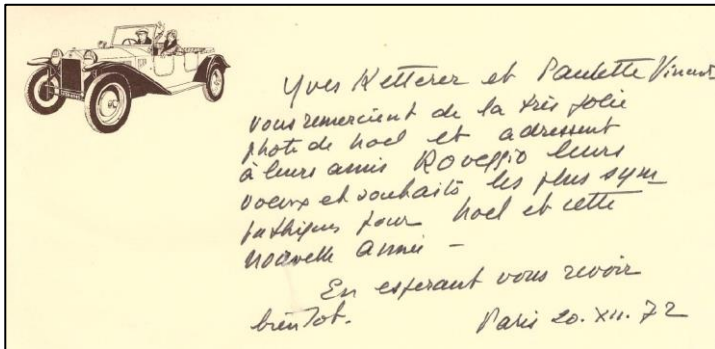 Yves Ketterer et Paulette Vincent
vous remercient de la très jolie
photo de noel et adressent
à leurs amis Roveggio leurs
voeux et souhaits les plus sym-
pathiques pour noel et cette
nouvelle année -
En esperant vous revoir
bientot.
Paris 20.XII.72